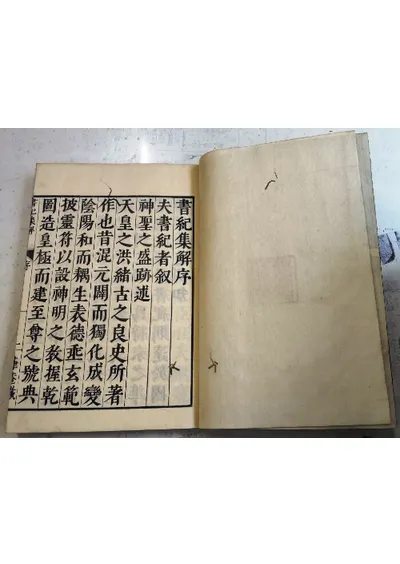 書紀集解序
夫書紀者叙
神聖之盛跡述
天皇之洪緒古之良史所著
作也昔混元闢而獨化成變
陰陽和而耦生表德垂玄範
披靈符以設神明之教握乾
圖造皇極而建至尊之號典